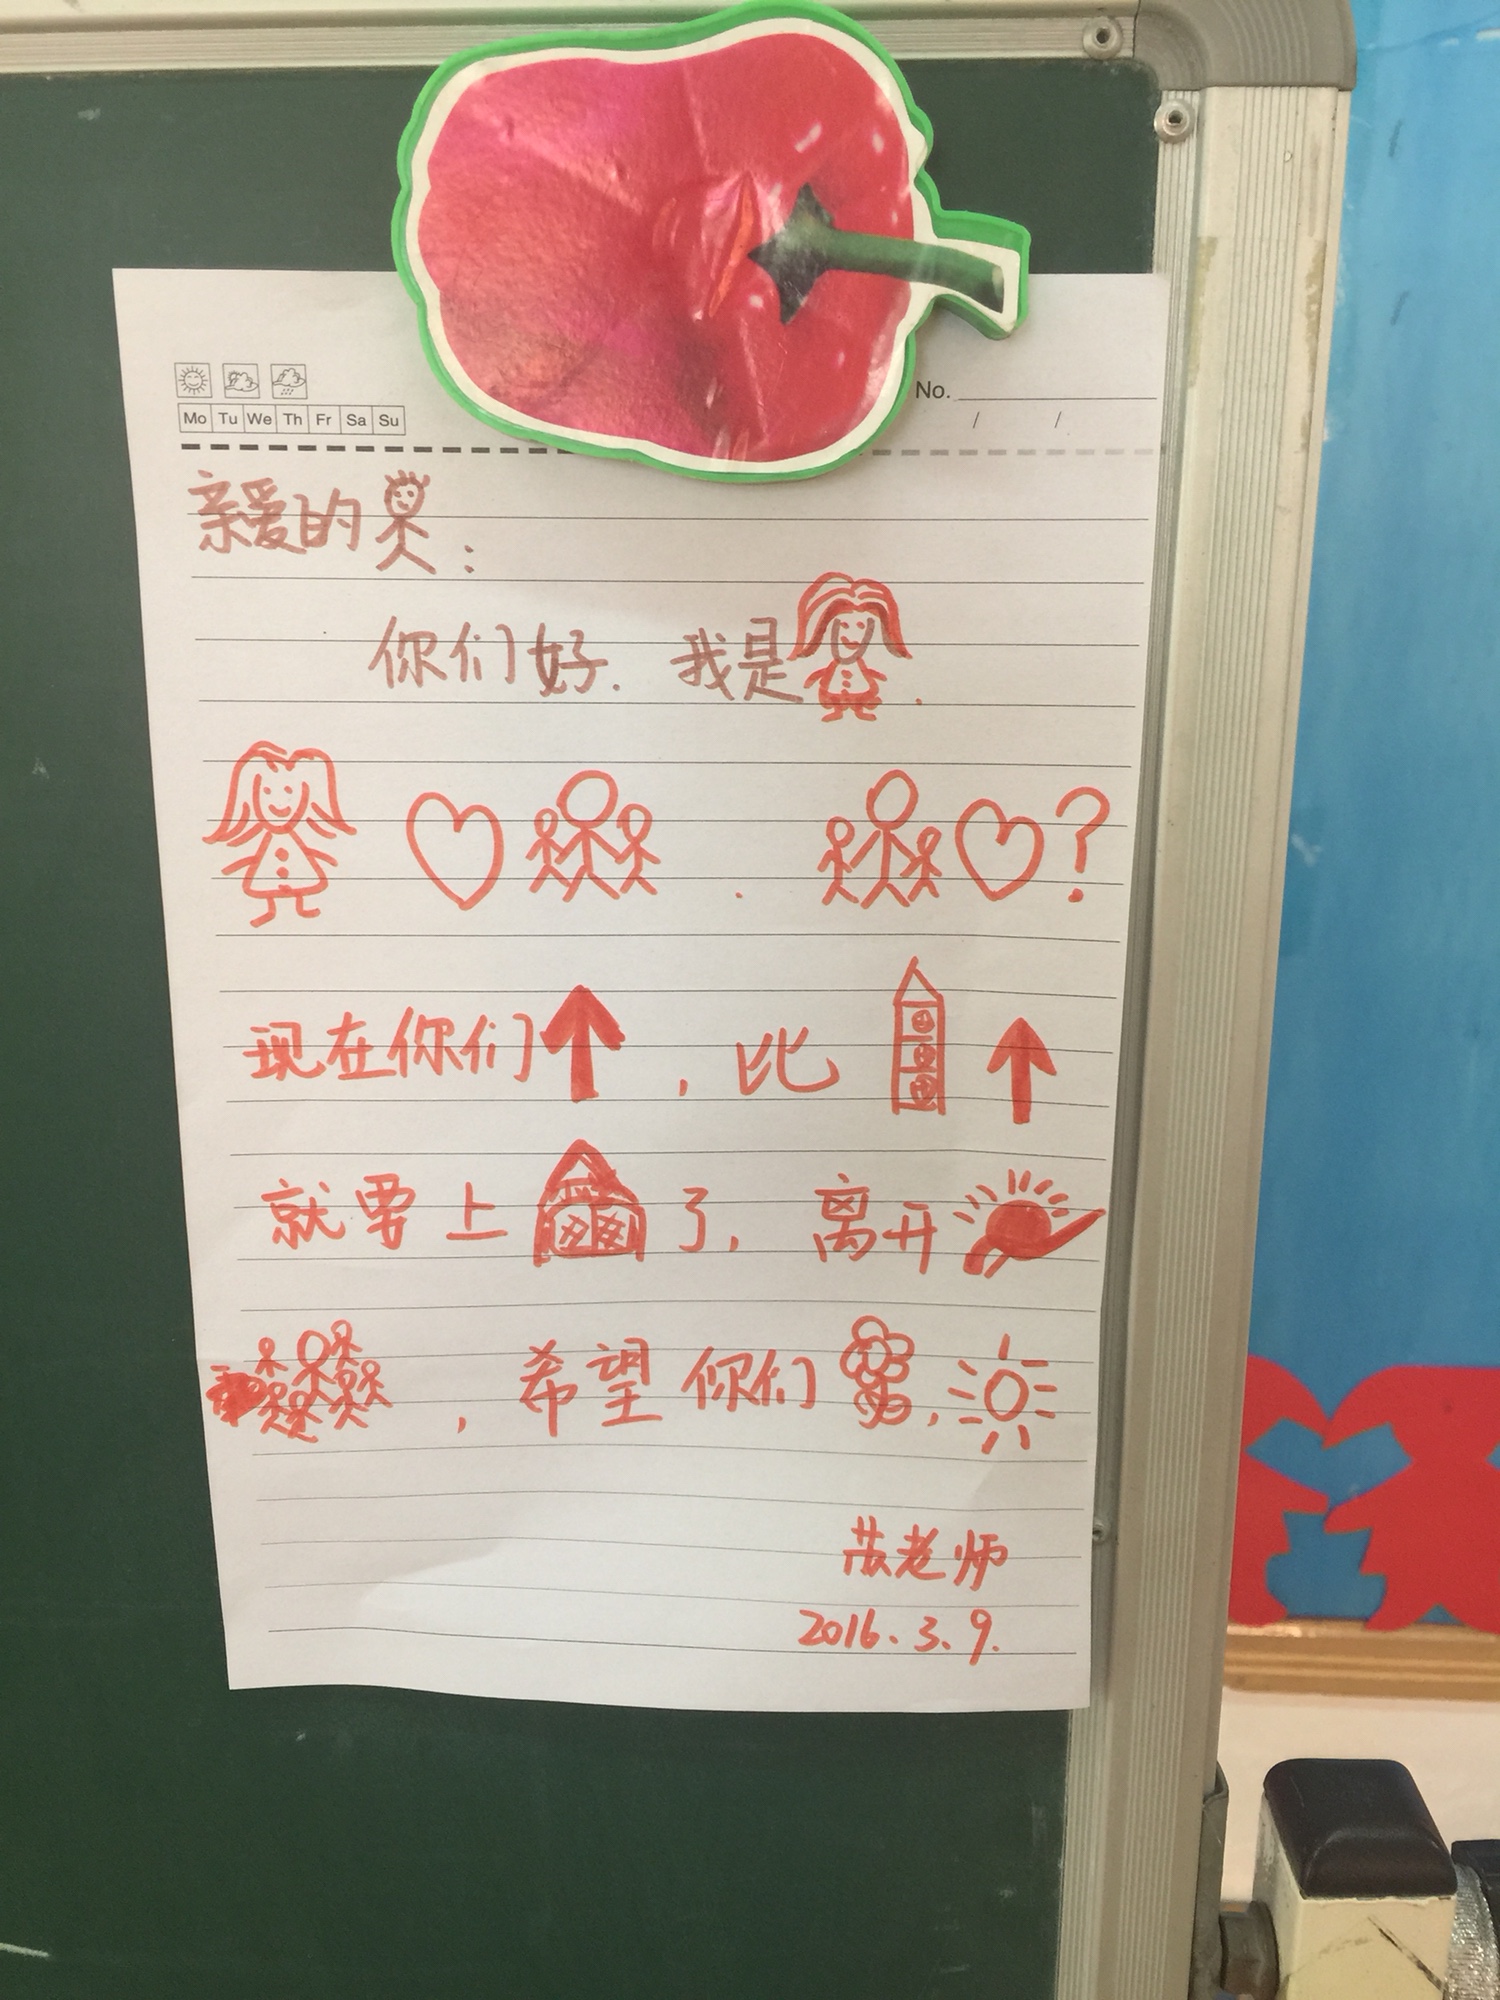 No.
Mo Tu We Th Fr Sa Su / /
亲爱的:
你们好. 我是.
. ?
现在你们, 比
就要上了, 离开
, 希望你们,
老师
2016.3.9.